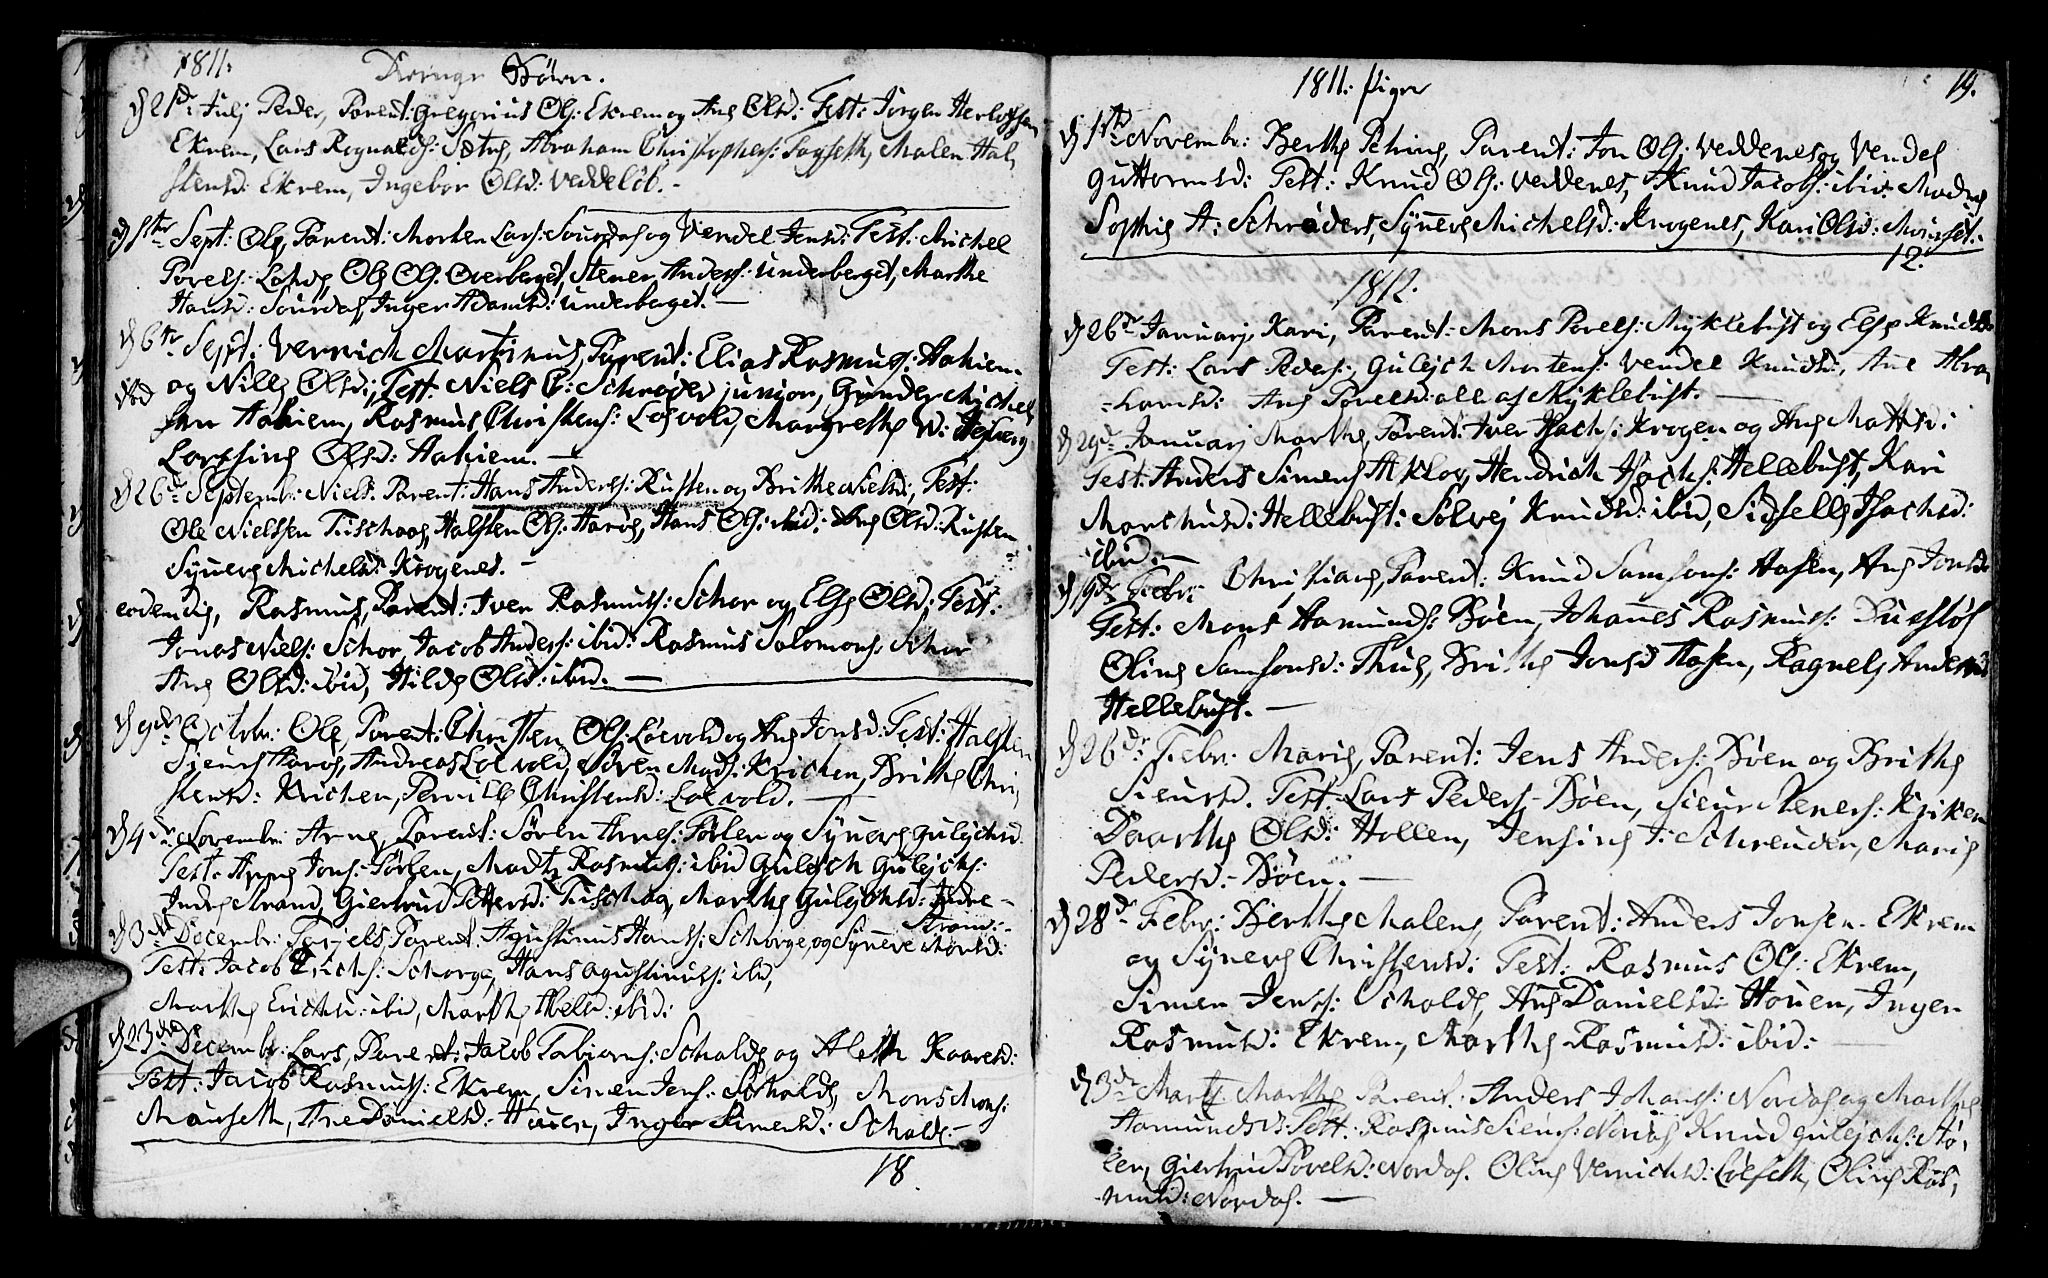 1811. Drenge Börn.
d 21de Julj Peder, Parent: Gregorius Ols: Ekrem og Ane Olsd: Test: Jörgen Herlofsen
Ekrem, Lars Rognalds: Sætre, Abraham Christophers: Fagseth, Malen Hal,
stensd: Ekrem, Ingebor Olsd: Veddelöb. -
d 1ste Sept: Ole, Parent: Morten Lars: Sourdal og Vendel Jensd: Test: Michel
Povels: Ole Ols: Overberget, Stener Anders: Underberget, Marthe
Hansd: Sourdal, Inger Adamsd: Underberget. -
d 6te Sept: Verrich Martinus, Parent: Elias Rasmus: Aahiem
og Nille Olsd: Test: Niels B: Schrøder junior, Gunder Michel
sen Aahiem, Rasmus Christens: Loevold, Margrethe W:
Olsd: Aahiem. -
d 26de Septembr: Niels. Parent: Hans Anders: Rusten og Brithe Nielsd: Test:
Ole Nielssen Tischaag, Halsten Ols: Aarve, Hans Ols: ibid: Ane Olsd: Rusten
Synneve Michelsd: Krogenes. -
eodem die, Rasmus, Parent: Iver Rasmuss: Schor og Else Olsd: Test:
Jonas Niels: Schor, Jacob Anders: ibid: Rasmus Salomons: Schor
Ane Olsd: ibid, Hilde Olsd: ibid. -
d 9de Octobr: Ole, Parent: Christen Ols: Loevold og Ane Jonsd: Test: Halsten
Sieurs Aarve, Andreas Loevold, Sören Mads: Krichen, Brithe Chri,
stensd: Krichen, Pernille Christensd: Loevold. -
d 4de Novembr: Arne, Parent: Sören Arnes: Pörlen og Synneve Gulichsd
Test: Arne Jons: Pörlen, Mads Rasmuss: ibid Gulich Gulichs:
Indre Strand, Giertrud Pettersd: Tischaag, Marthe Gulichsd: Indre -
Strand: -
d 3de Decembr: Parent: Agustinus Hans: Schorge, og Synneve Monsd:
Test: Jacob Erichs: Schorge, Hans Agustinuss: ibid,
Marthe Erichsd: ibid, Marthe Abelsd: ibid:
d 23de Decembr: Lars, Parent: Jacob Fabians: Scholde og Aleth Kaaresd:
Test: Jacob Rasmuss: Ekrem, Simen Jens: Scholde, Mons Mons:
Mauseth, Ane Danielsd: Houen, Inger Simensd: Scholde. -
18.
1811. Piger
19.
d 1ste Novembr: Berthe Petrine, Parent: Jon Ols: Veddenes og Vendel
Guttormsd: Test: Knud Ols: Veddenes, Knud Jacobs: ibid:
Sophie A: Schrøders, Synneve Michelsd: Krogenes, Kari Olsd:
12.
1812.
d 26de Januarj, Kari, Parent: Mons Povels: Myklebust og Else Knudsd:
Test: Lars Peders: Gulich Mortens: Vendel Knudsd: Ane Abra
-hamsd: Ane Povelsd: all af Myklebust. -
d 29de Januarj Marthe, Parent: Iver Isachs: Krogen og Ane Mattsd:
Test: Anders Simens Hendrich Isachs: Hellebust, Kari
Marchusd: Hellebust: Solvej Knudsd: ibid, Sidselle Isachsd:
ibid: -
d 19de Febr: Christiane, Parent: Knud Samsons: Aasen, Ane Jonsd:
Test: Mons Aamunds: Böen, Johannes Rasmus:
Oline Samsonsd: Thue, Brithe Jonsd Aasen, Ragnele Andersd:
Hellebust. -
d 26de Febr: Marie, Parent: Jens Anders: Böen og Brithe
Sieursd. Test: Lars Peders: Böen, Sieur Steners: Kriken
Daarthe Olsd: Hollen, Jensine J: Schreuder, Marie
Pedersd: Böen. -
d 28de Febr: Berthe Malene, Parent: Anders Jonsen Ekrem
og Synneve Christensd: Test: Rasmus Ols: Ekrem,
Simen Jens: Scholde, Ane Danielsd: Houen, Inger
Rasmusd: Ekrem, Marthe Rasmusd: ibid: -
d 3de Marts Marthe Parent: Anders Johans: Nordal og Marthe
Aamundsd: Test: Rasmus Sieurs: Nordal Knud Gulichs: Stö,
len, Giertrud Povelsd: Nordal. Oline Verrichsd: Loeseth, Oline Ras,
musd: Nordal. -